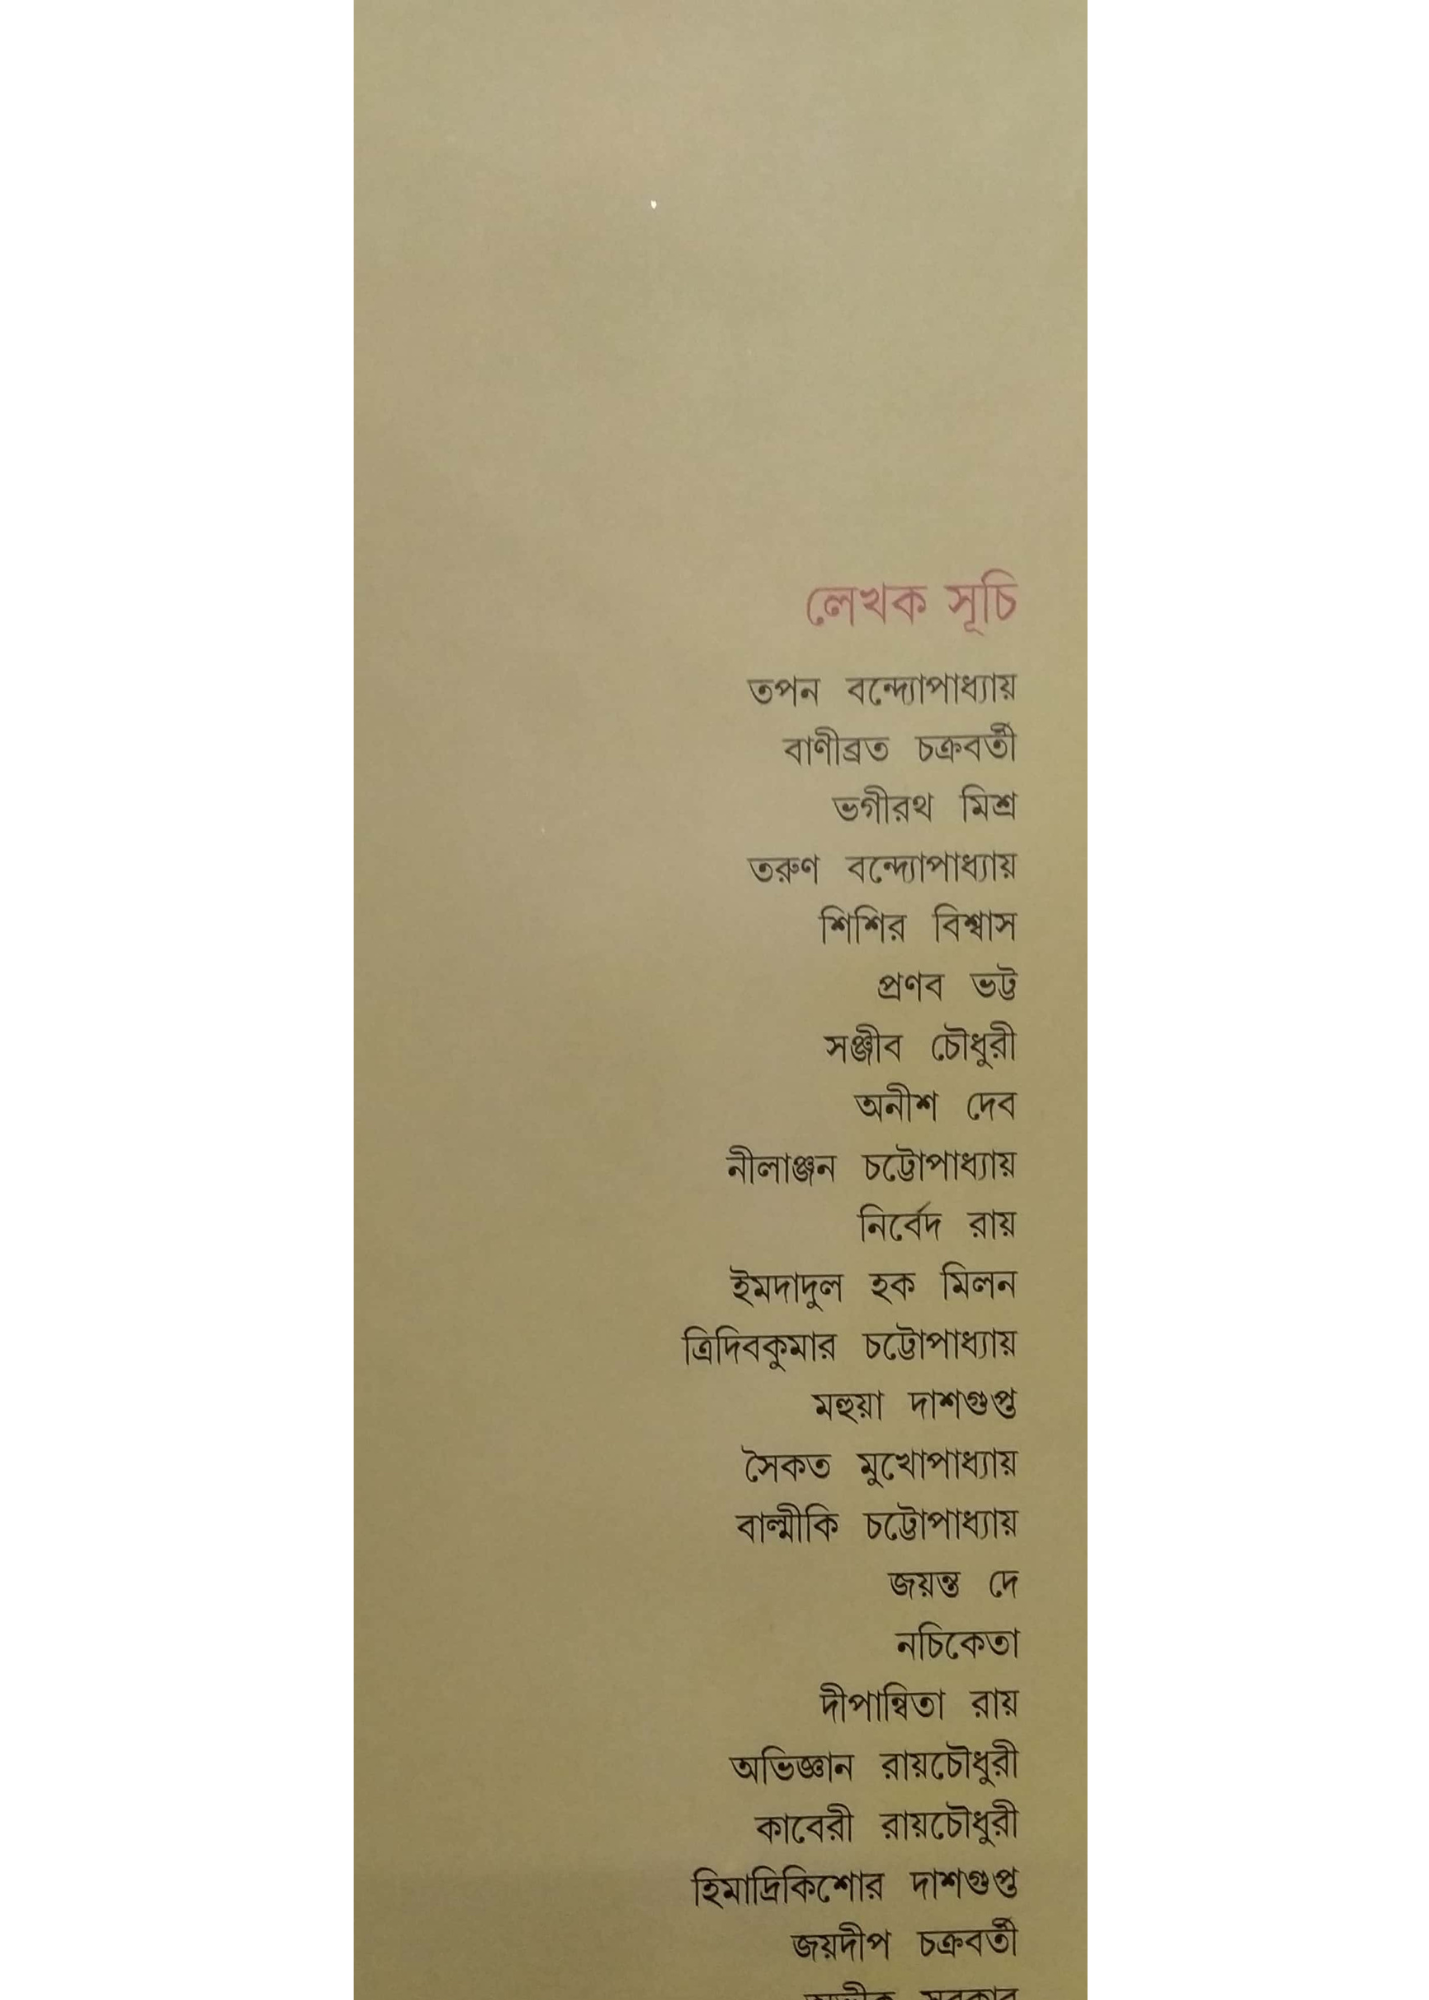 লেখক সূচি
তপন বন্দ্যোপাধ্যায়
বাণীব্রত চক্রবর্তী
ভগীরথ মিশ্র
তরুণ বন্দ্যোপাধ্যায়
শিশির বিশ্বাস
প্রণব ভট্ট
সঞ্জীব চৌধুরী
অনীশ দেব
নীলাঞ্জন চট্টোপাধ্যায়
নির্বেদ রায়
ইমদাদুল হক মিলন
ত্রিদিবকুমার চট্টোপাধ্যায়
মহুয়া দাশগুপ্ত
সৈকত মুখোপাধ্যায়
বাল্মীকি চট্টোপাধ্যায়
জয়ন্ত দে
নচিকেতা
দীপান্বিতা রায়
অভিজ্ঞান রায়চৌধুরী
কাবেরী রায়চৌধুরী
হিমাদ্রিকিশোর দাশগুপ্ত
জয়দীপ চক্রবর্তী